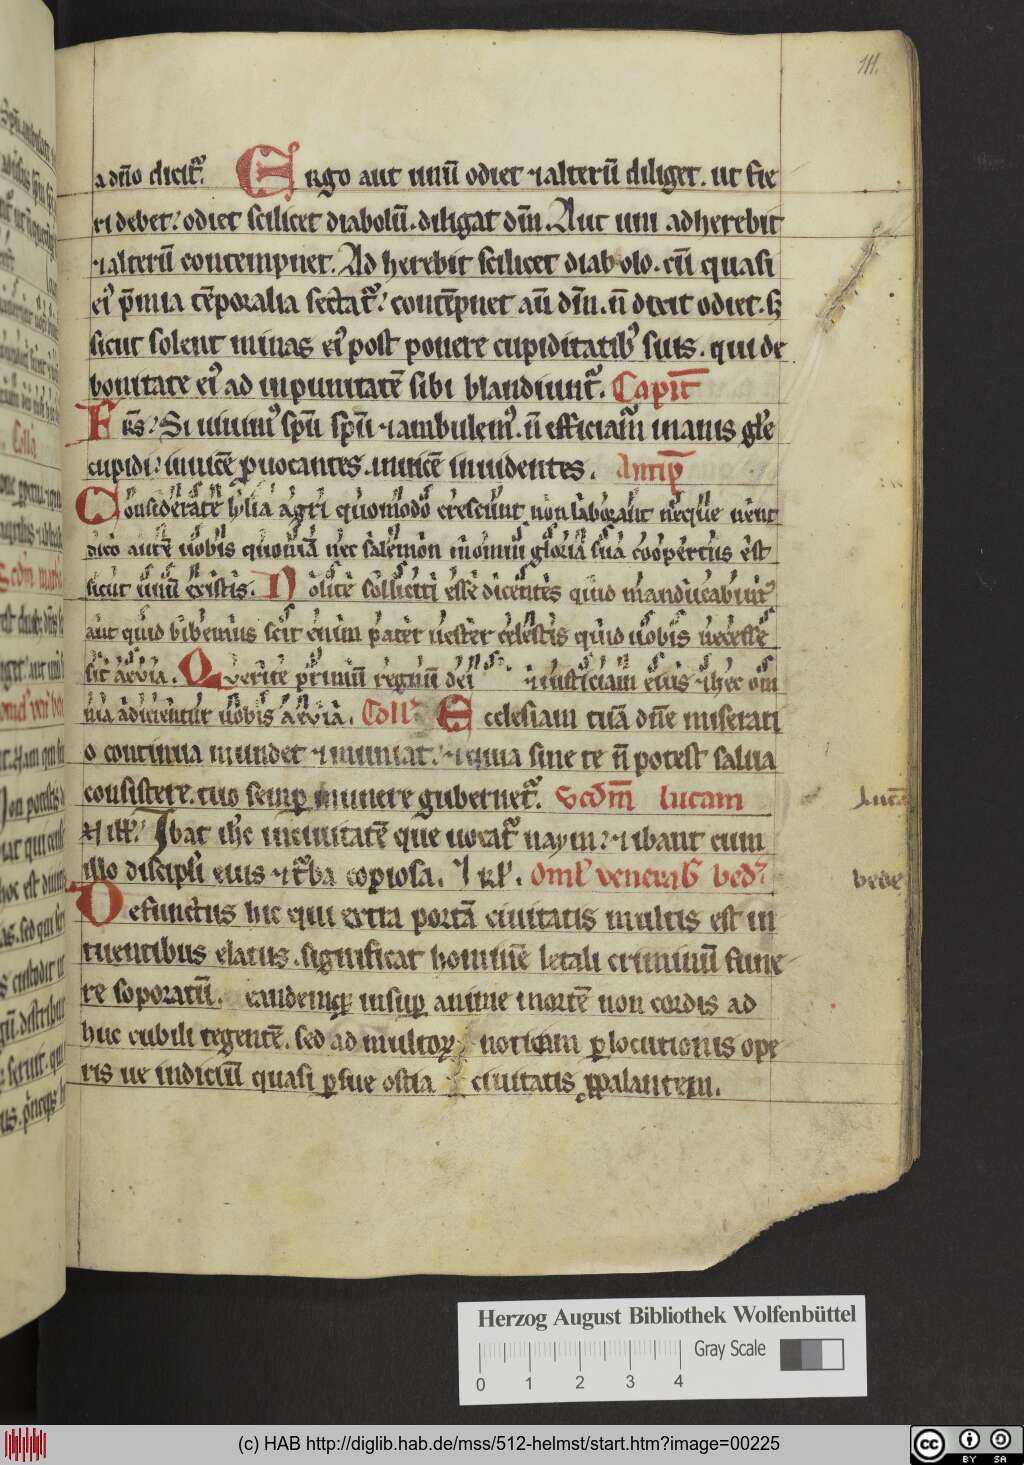 111.
a dño dicit᷑. Ergo aut unū odiet ⁊ alterū diliget. ut fie
ri debet. odiet scilicet diabolū. diligat dm̄. Aut uni adherebit
⁊ alterū contempnet. Ad herebit scilicet diabolo. cū quasi
ei᷒ p̄mia tēporalia sectat᷑. contēpnet aū dm̄. n̄ dicit odiet. sꝫ
sicut solent minas ei᷒ post ponere cupiditatib᷒ suis. qui de
bonitate ei᷒ ad inpunitatē sibi blandiunt᷑. Capit̄
Frs̄. Si uiuim᷒ spū spū ⁊ ambulem᷒. n̄ efficiam᷑ inanis gl̄e
cupidi. inuicē ꝓuocantes. inuicē inuidentes. Antip̄
Considerate lylia agri quomodo crescunt non laborant neque nent
dico autē uobis quoniā nec salemon in omni gloria sua coopertus est
sicut unū ex istis. Nolite solliciti esse dicentes quid manducabimus
aut quid bibemus scit enim pater uester celestis quid uobis necesse
sit aeuia. Querite primū regnū dei ⁊ iusticiam eius ⁊ hec om
nia adicientur uobis aeuia. Coll᷒ Ecclesiam tuā dn̄e miserati
o continua mundet ⁊ muniat. ⁊ quia sine te n̄ potest salua
consistere. tuo semꝑ munere gubernet᷑. Scdm̄ lucam
In ill᷒. Ibat ih̄c in ciuitatē que uocat᷑ naym. ⁊ ibant cum
illo discipl̓i eius ⁊ t᷑ba copiosa. ⁊ rl̓. Oml̓ venerab̓ bed᷒
Defunctus hic qui extra portā ciuitatis multis est in
tuentibus elatus. significat hominē letali criminū fune
re soporatū. eandemqꝫ insuꝑ anime mortē non cordis ad
huc cubili tegentē. sed ad multoꝝ noticiam ꝑ locutionis ope
ris ue indiciū quasi ꝑ sue ostia ciuitatis ꝓpalantem.
lucā
bede
Herzog August Bibliothek Wolfenbüttel
Gray Scale
0 1 2 3 4
(c) HAB http://diglib.hab.de/mss/512-helmst/start.htm?image=00225
cc BY SA